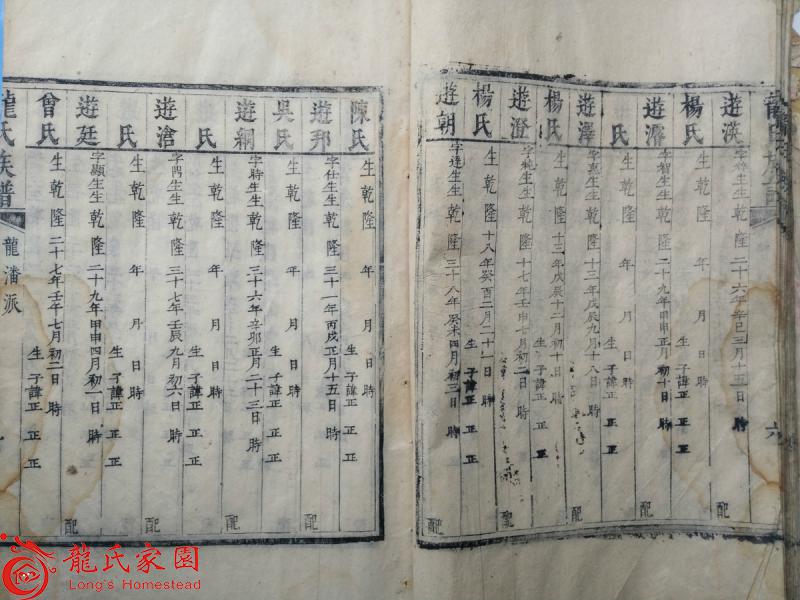 遊渶
字 生 生乾隆二十六年辛巳三月十五日 時
楊氏
遊濬
字智生生乾隆二十九年甲申正月初十日 時
配
氏
生乾隆 年 月 日 時
生子諱正 正 正
遊澤
字嘉生生乾隆十三年戊辰九月十八日
配
楊氏
生乾隆十三年戊辰十二月初十日 時
生子諱正 正 正
遊澄
生生乾隆十七年壬申七月初二日 時
配
楊氏
生乾隆十八年癸酉二月二十一日 時
生子諱正 正 正
遊朝
字達生生乾隆三十八年癸未四月初三日 時
配
陳氏
生乾隆 年 月 日 時
生子諱正 正 正
遊邦
字仕生生乾隆三十一年丙戌正月十五日 時
配
吳氏
生乾隆 年 月 日 時
生子諱正 正 正
遊綱
字時生生乾隆三十六年辛卯正月二十三日 時
配
氏
生乾隆 年 月 日 時
生子諱正 正 正
遊滄
字門生生乾隆三十七年壬辰九月初六日 時
配
氏
生乾隆 年 月 日 時
生子諱正 正 正
遊廷
字顯生生乾隆二十九年甲申四月初一日 時
配
曾氏
生乾隆二十七年壬午七月初二日 時
生子諱正 正 正
龍氏族譜
龍潘派
龍氏家園
Long's Homestead